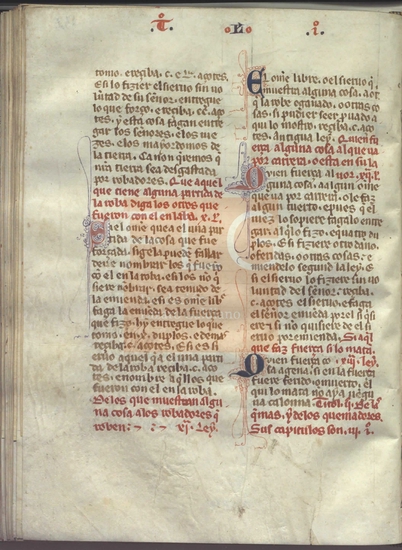 T. L. i.
tomo. e reciba. c. e L. açotes.
E si lo fizier el sieruo sin uo
luntad de su señor. entregue
lo que forço. e reciba. cc. aço
tes. y esta cosa fagan entre
gar los señores. elos iue
zes. elos mayordomos de
la tierra. Ca non queremos q̄
nr̄a tierra sea desgastada
por robadores. Que aquel
que tiene alguna partida de
la roba diga los otros que
fueron con el en la roba. x. L.
Si el ome que a el una par
tida de la cosa que fue
forçada. si gela puede fallar
deue nombrar los que fueron
cō el en la roba. e si los nō q̄
siere nombrar. sea tenudo de
la emienda. e si es ome libre
faga la emienda de la fuerça
que fizo. y entregue lo que
tomo. en. x. duplos. e demas
reciba. c. açotes. e si es si
eruo aquel q̄ a el una parti
da. de la roba reciba. c. aço
tes. e nombre aq̄llos que
fueron con el en la roba.
De los que muestran algu
na cosa a los robadores q̄
roben. xi. Ley.
El ome libre. o el sieruo q̄
muestra alguna cosa. a otro
q̄ la robe o ganado. o otras co
sas. si pudier seer prouado a
qui lo mostro. reciba. c. aço
tes. Antigua ley. Qui en fu
erça alguna cosa al que ua
por carrera. o esta en su la
uor. xii. L.
Qui en fuerça al
guna cosa. a algun ome
que ua por carrera. o le faz
algun tuerto. e pues que el
iuez lo sopiere fagalo entre
gar al q̄ lo fizo. e quatro du
plos. E si fiziere otro dano.
ofendas. o otras cosas. e
miendelo segund la ley. e
si el sieruo lo fiziere sin uo
luntad del señor. reciba.
c. açotes el sieruo. e faga
el señor emienda por el si q̄si
ere. e si no quisiere de el si
eruo por emienda. Si aq̄l
que faz fuerça si lo matā.
Qui en fuerça co. xiii. ley.
sa agena. si en la fuerça
fuere ferido. o muerto. el
qui lo mato no aya ningu
na calonna. Titol. ii. De los
q̄mas. y de los quemadores.
Sus capitulos son. iii.